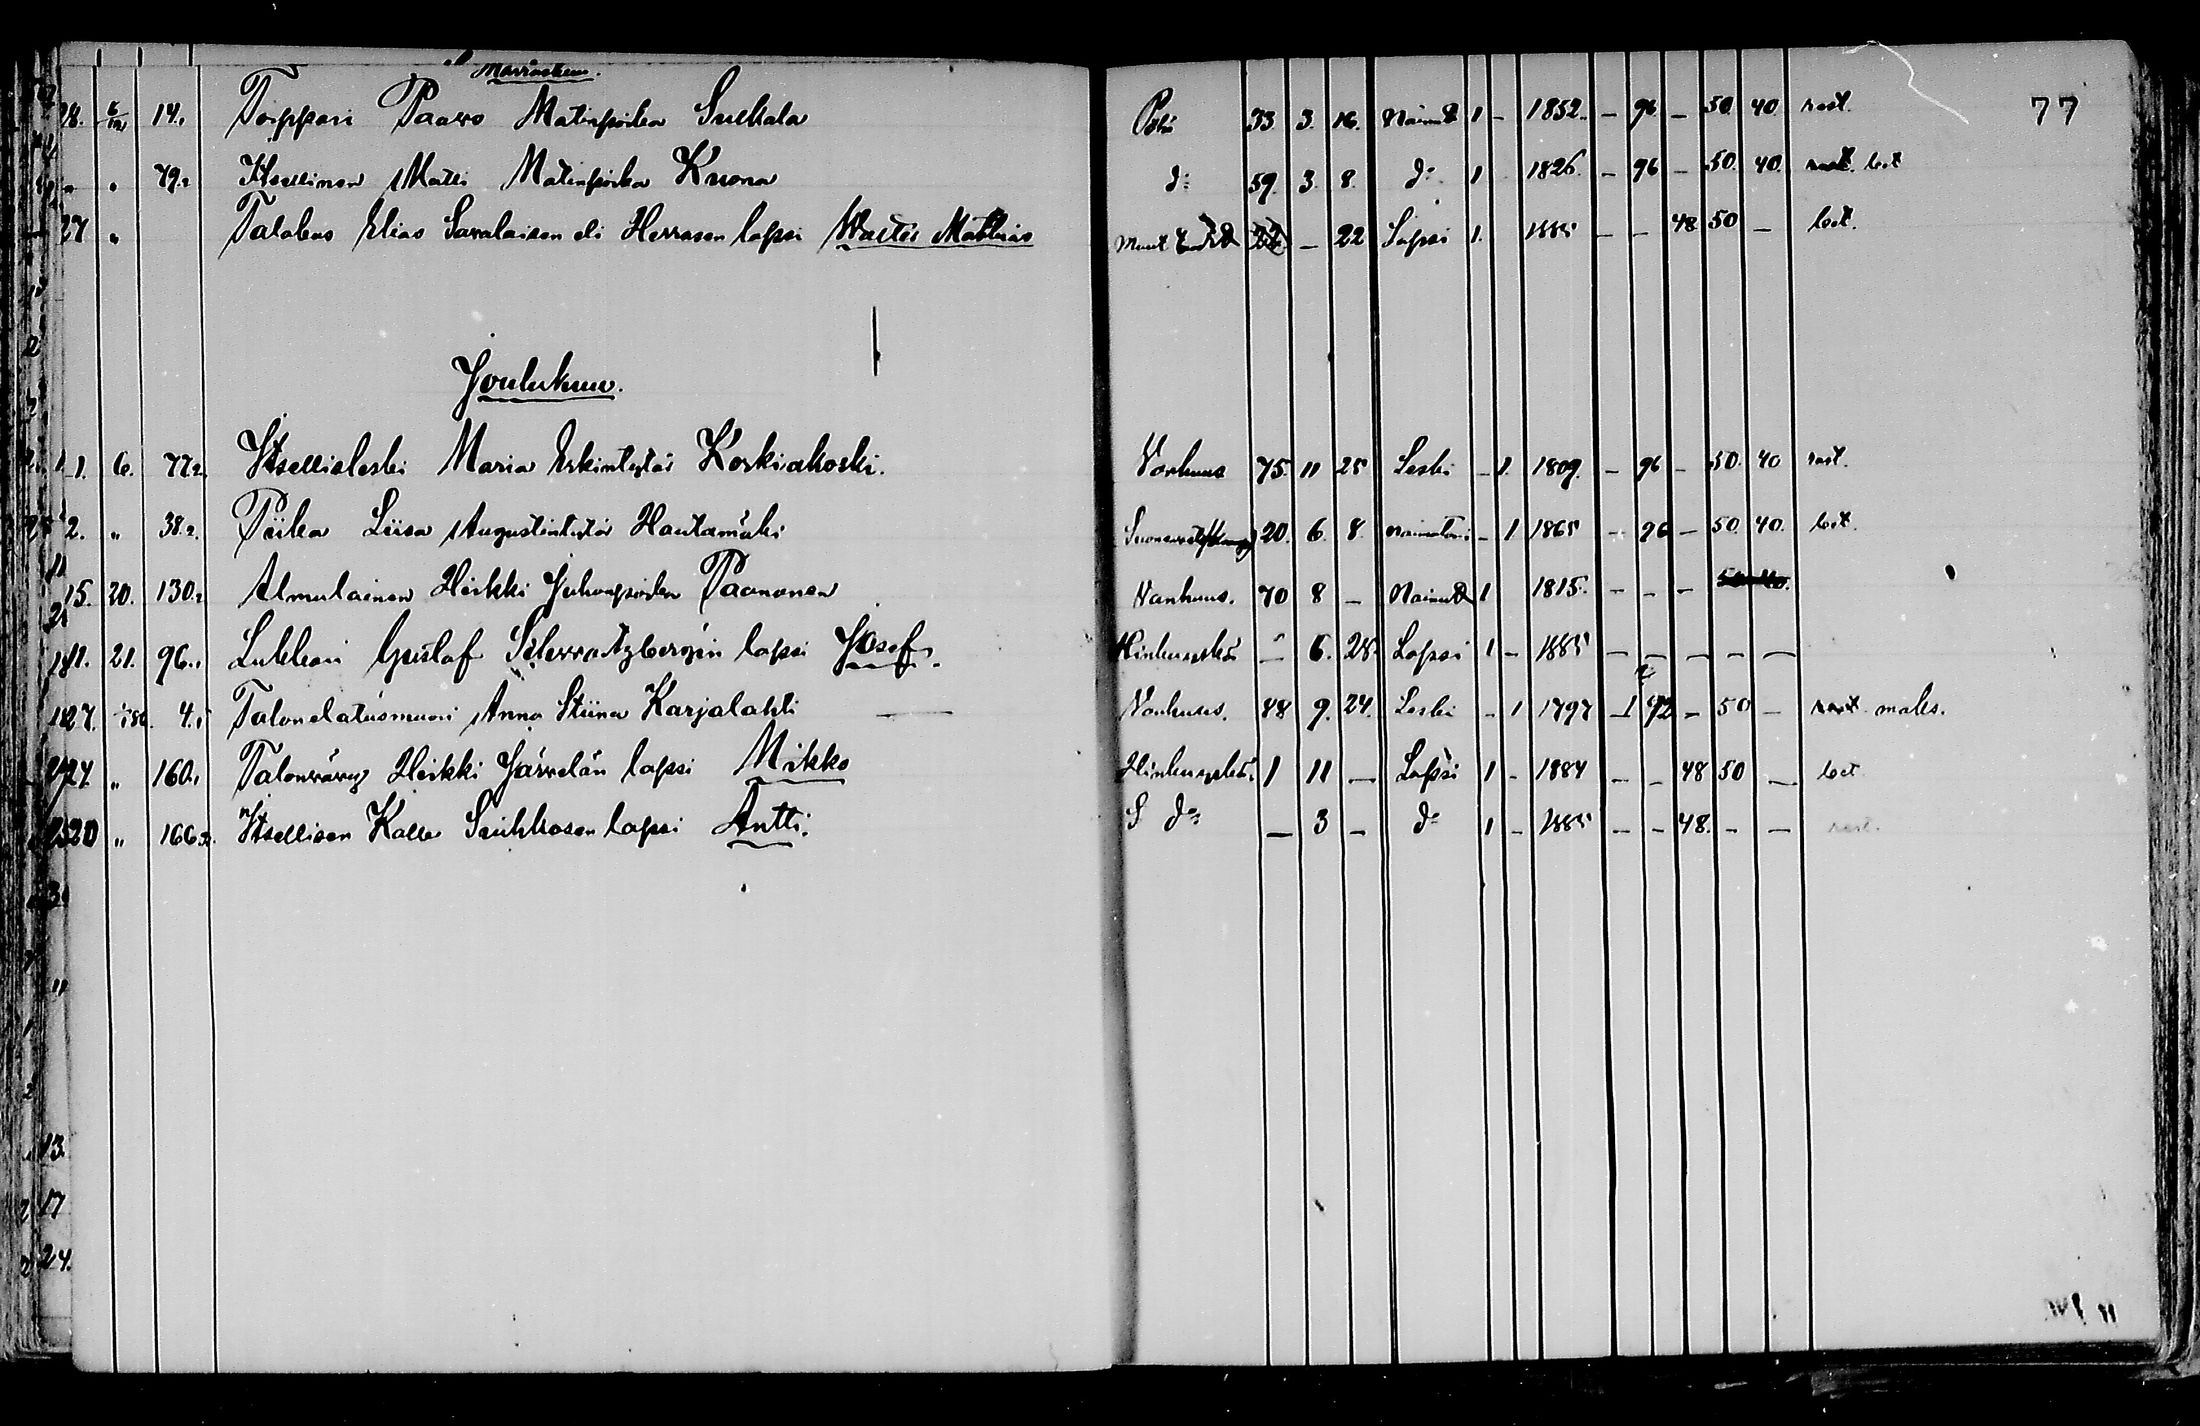 Marraskuu.
28. 6/12 14.1 Torppari Paavo Matinpoika Suckala 33. 3. 16. Nainut 1 - 1852. - 96. - 50. 40. rast. 77
" " 79.2 Itsellinen Matti Matinpoika Kuona d:o 59. 3. 8. d:o 1 1826. - 96 - 50. 40. rast. lect
27 " Talokas Elias Savalaisen eli Herrasen lapsi Walter Mathias - 22 Lapsi 1. 1885 - - 48 50 - lect.
Joulukuu.
1. 6. 77.2 Itsellisleski Maria Erkintytär Korkiakoski. Vanhuus 75. 11 25 Leski - 1. 1809. - 96 - 50. 40 rast.
2. " 38.2. Piika Liisa Augustintytär Hautamäki 20. 6. 8. naimatoin - 1 1865 - 96 - 50. 40. lect.
15. 20. 130.2 Almulainen Heikki Juhonpoika Paananen Vanhuus. 70 8 - Nainut 1 1815. - - - 50 40.
21. 96. Lukkari Gustaf lapsi Josef. Hinkuyskä - 6. 28. Lapsi 1 - 1885 - - - - -
27. 4. Talonelatusmuori Anna Stiina Karjalahti Vanhuus. 88 9. 24. Leski - 1 1797 - 1 92 - 50 - rast. maks.
27. " 160.1 Talonvävy Heikki Järvelän lapsi Mikko Hinkuyskä 1 11 - Lapsi 1 - 1884 - - 48 50 - lect.
20 " 166 Itsellisen Kalle lapsi Antti. d:o - 3 - d:o 1 - 1885 - - 48. - - rast.
"
13.
17
24.